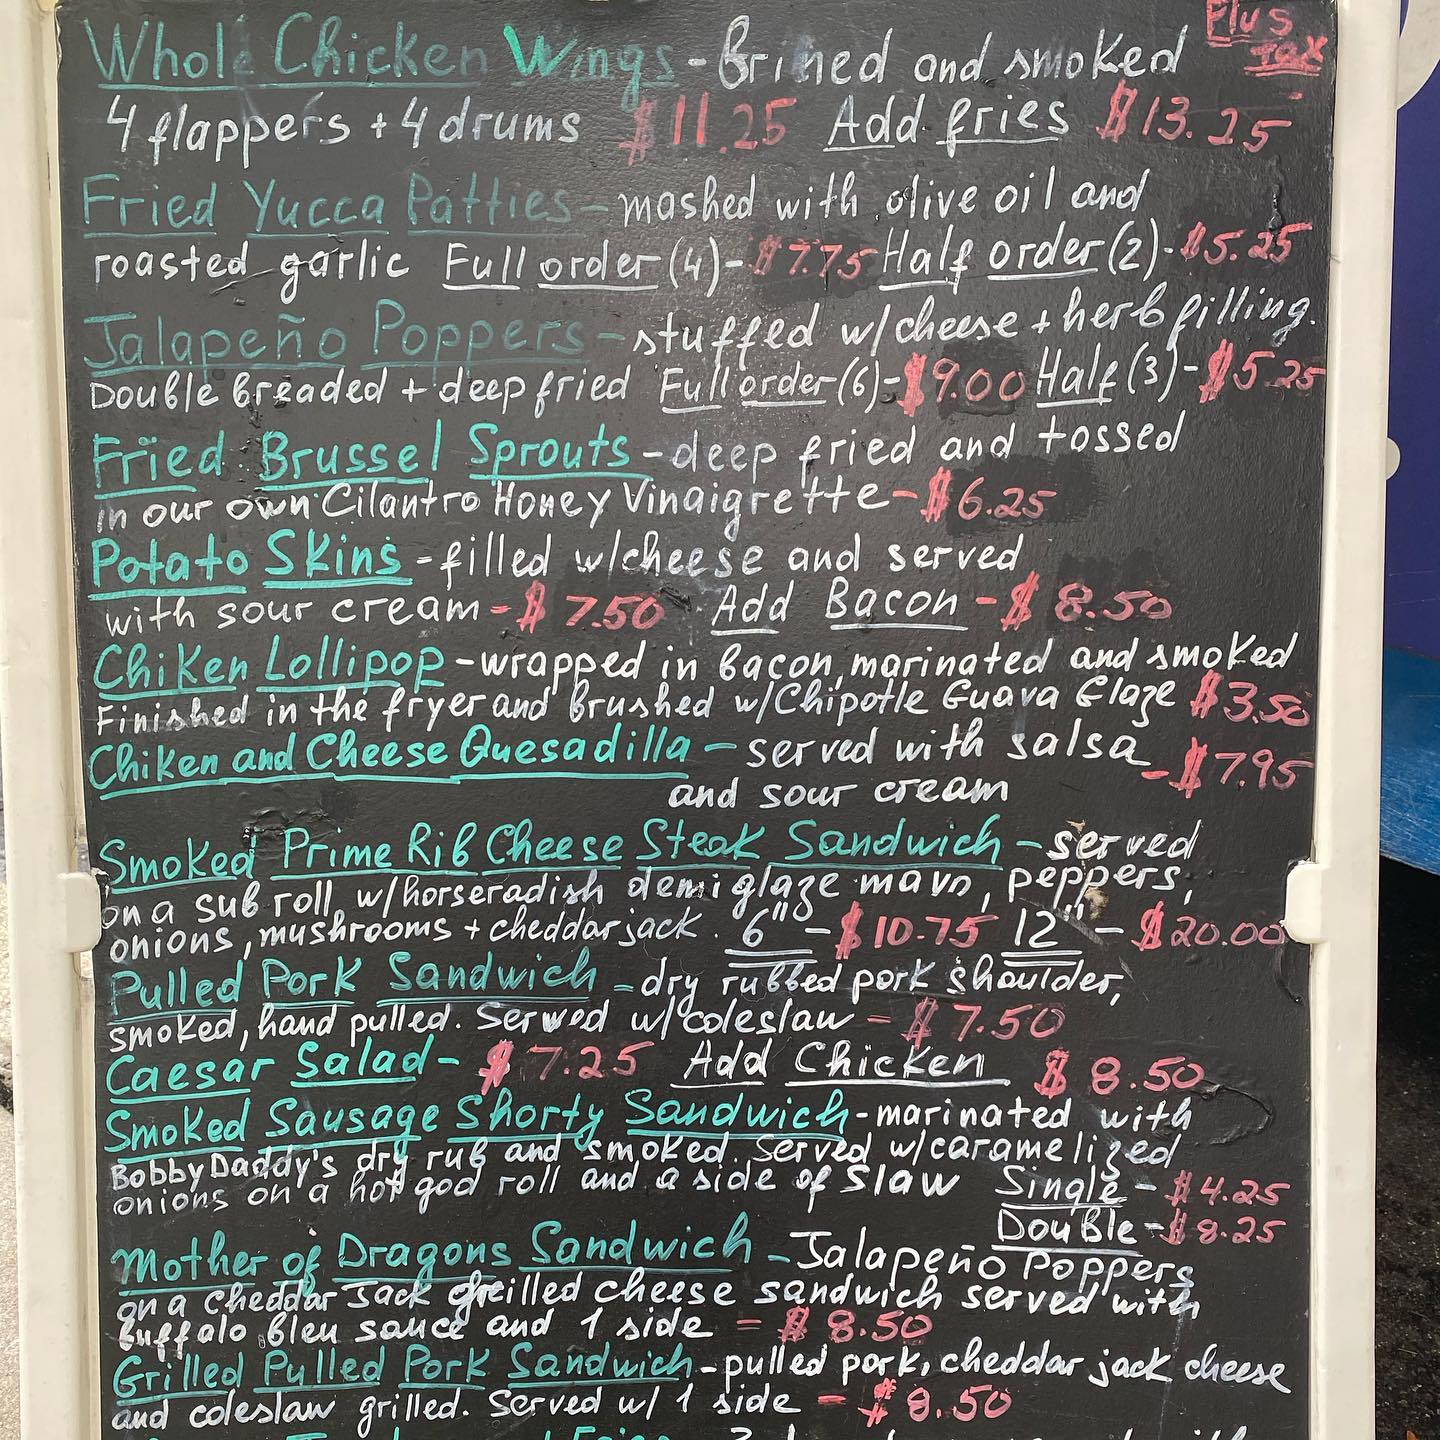 Plus
tax
Whole Chicken Wings - brined and smoked
4 flappers + 4 drums $11.25 Add fries $13.25
Fried Yucca Patties - mashed with olive oil and
roasted garlic Full order (4) - $7.75 Half order (2) - $5.25
Jalapeño Poppers - stuffed w/cheese + herb filling.
Double breaded + deep fried Full order (6) - $9.00 Half (3) - $5.25
Fried Brussel Sprouts - deep fried and tossed
in our own Cilantro Honey Vinaigrette - $6.25
Potato Skins - filled w/cheese and served
with sour cream - $7.50 Add Bacon - $8.50
Chiken Lollipop - wrapped in bacon, marinated and smoked
Finished in the fryer and brushed w/Chipotle Guava Glaze $3.50
Chiken and Cheese Quesadilla - served with salsa - $7.95
and sour cream
Smoked Prime Rib Cheese Steak Sandwich - served
on a sub roll w/horseradish demi glaze mayo, peppers,
onions, mushrooms + cheddar jack. 6" - $10.75 12" - $20.00
Pulled Pork Sandwich - dry rubbed pork shoulder,
smoked, hand pulled. Served w/coleslaw - $7.50
Caesar Salad - $7.25 Add Chicken $8.50
Smoked Sausage Shorty Sandwich - marinated with
BobbyDaddy's dry rub and smoked. Served w/caramelized
onions on a hot god roll and a side of slaw Single - $4.25
Double - $8.25
Mother of Dragons Sandwich - Jalapeño Poppers
on a cheddar Jack grilled cheese sandwich served with
buffalo bleu sauce and 1 side - $8.50
Grilled Pulled Pork Sandwich - pulled pork, cheddar jack cheese
and coleslaw grilled. Served w/ 1 side - $8.50